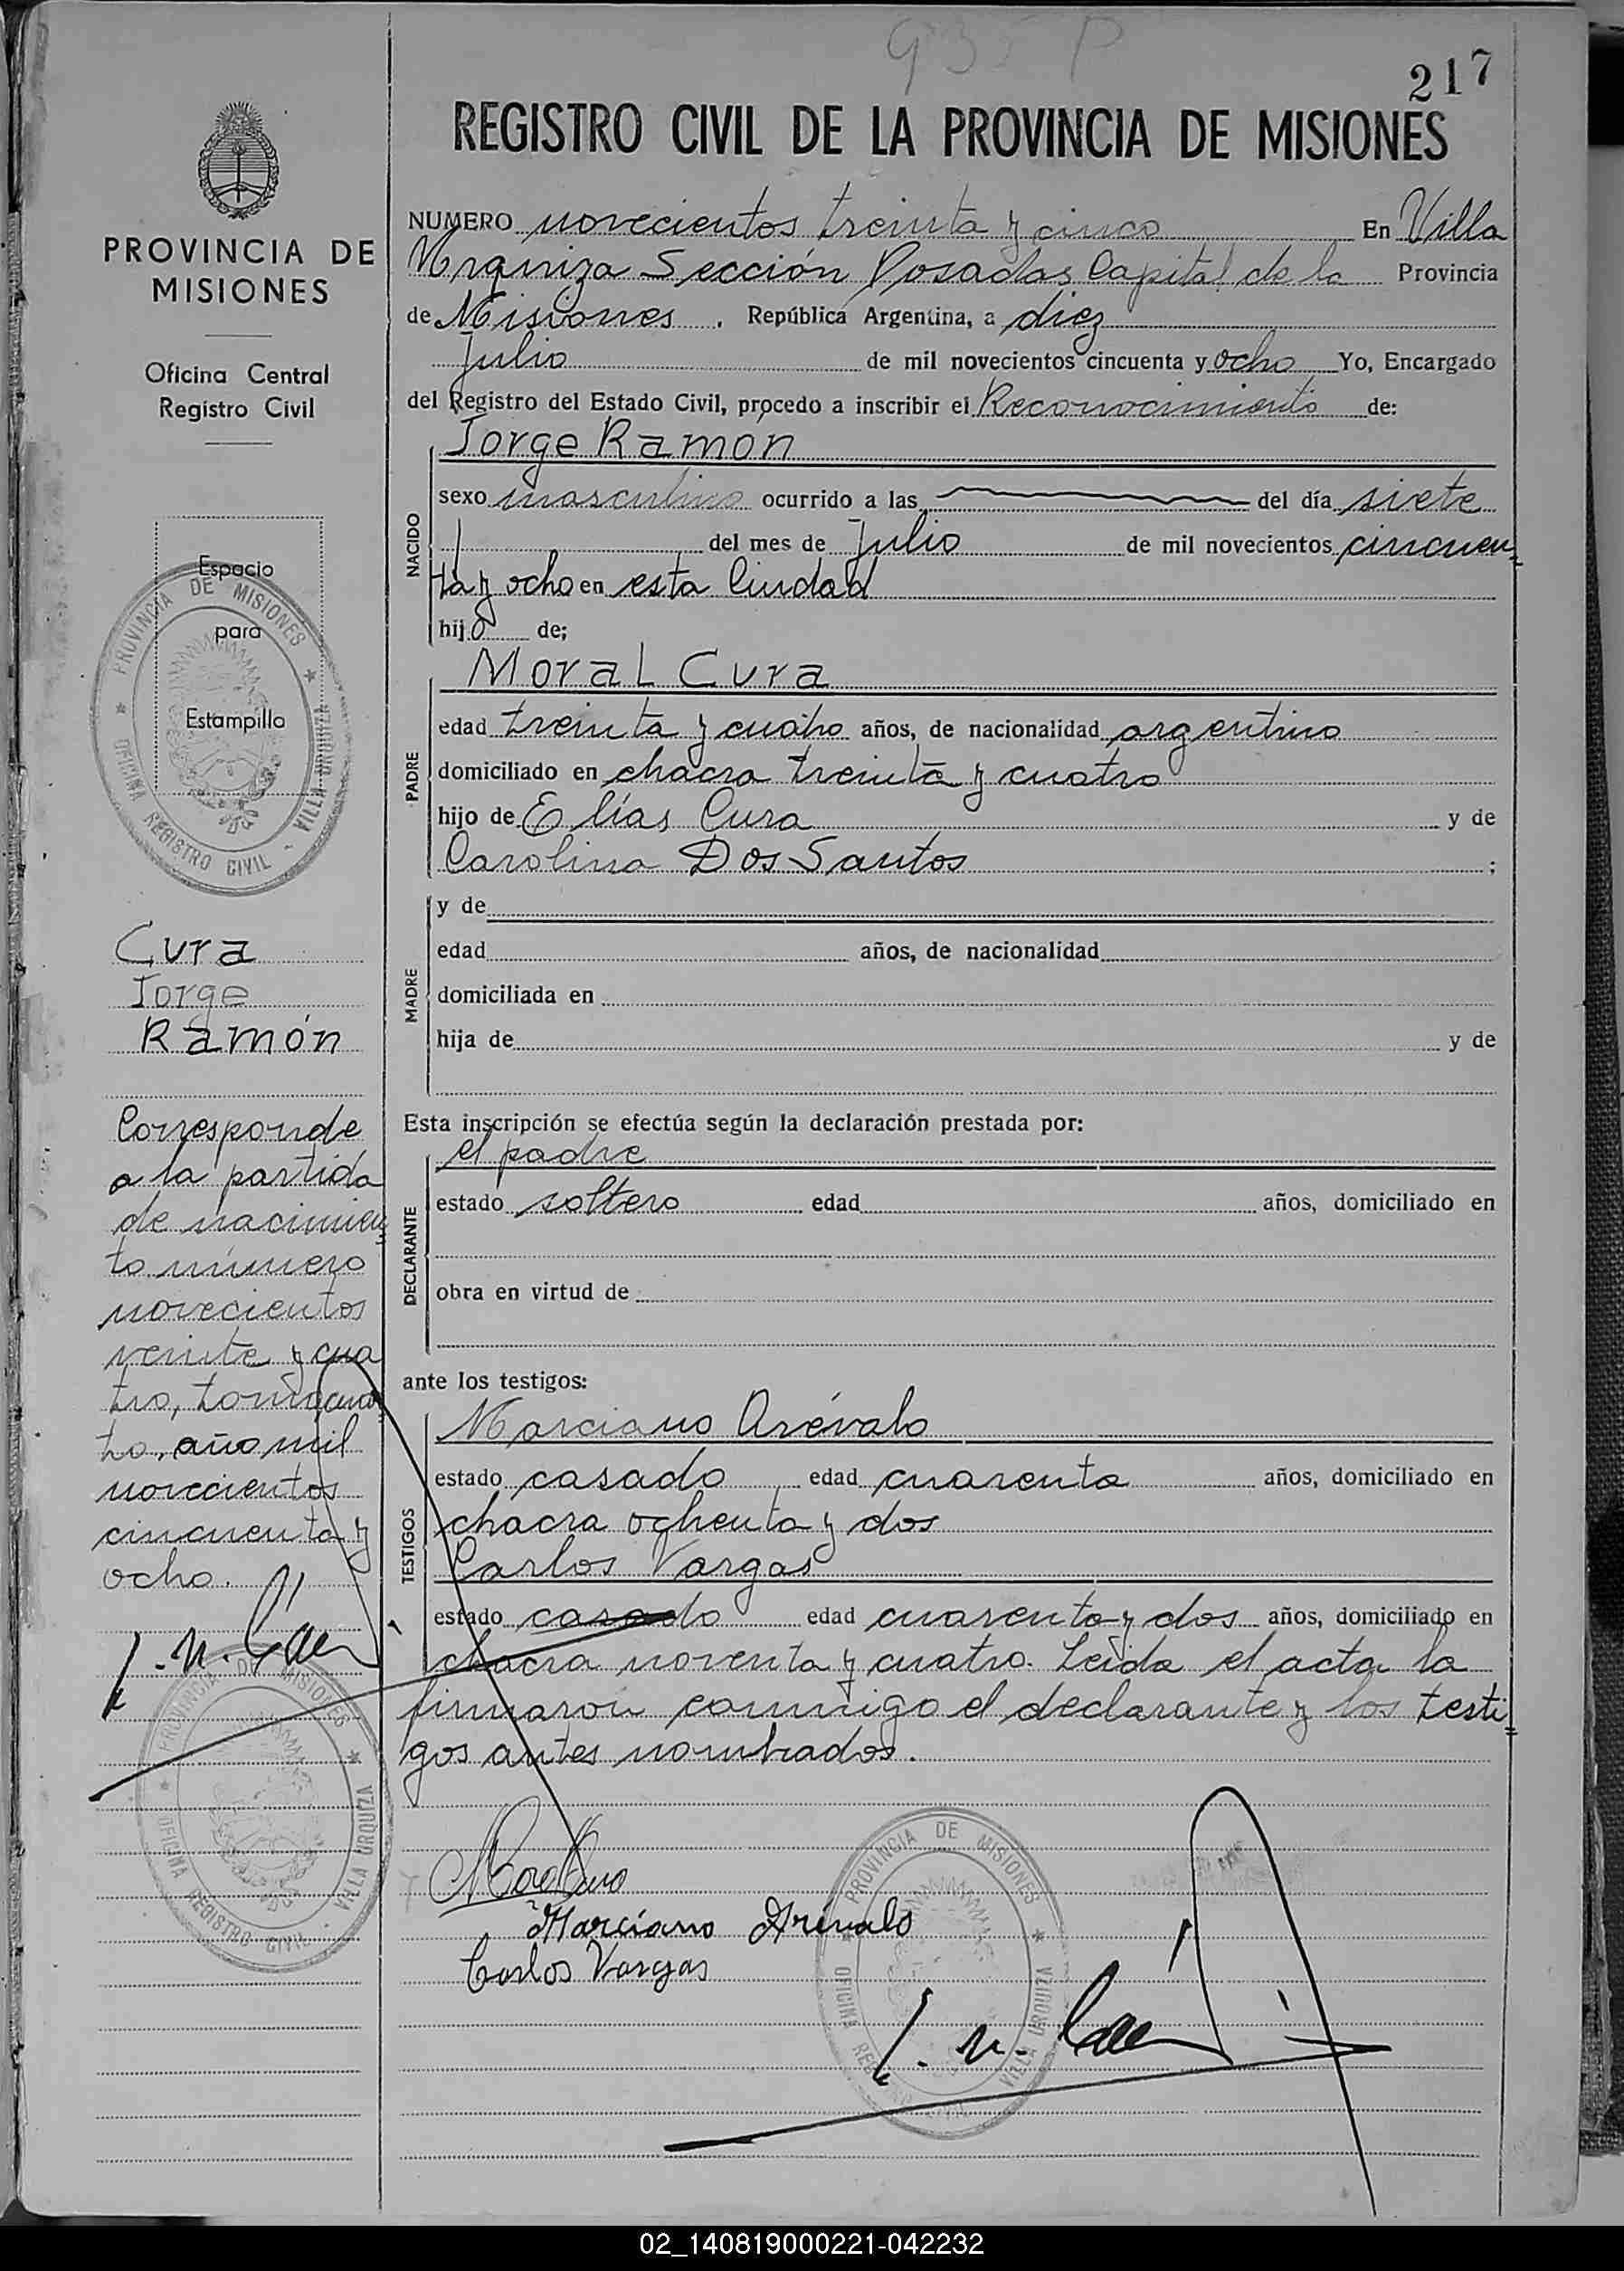 935 P
217
REGISTRO CIVIL DE LA PROVINCIA DE MISIONES
PROVINCIA DE
MISIONES
Oficina Central
Registro Civil
Espacio
para
Estampilla
PROVINCIA DE MISIONES
OFICINA REGISTRO CIVIL - VILLA URQUIZA
Cura
Jorge
Ramón
Corresponde
a la partida
de nacimien
to número
novecientos
veinte y cua
tro, tomo cua
to, año mil
novecientos
cincuenta y
ocho.
PROVINCIA DE MISIONES
OFICINA REGISTRO CIVIL - VILLA URQUIZA
NUMERO novecientos treinta y cinco En Villa
Urquiza Sección Posadas Capital de la Provincia
de Misiones. República Argentina, a diez
Julio de mil novecientos cincuenta y ocho Yo, Encargado
del Registro del Estado Civil, procedo a inscribir el Reconocimiento de:
NACIDO
Jorge Ramón
sexo masculino ocurrido a las del día siete
del mes de Julio de mil novecientos cincuen
ta y ocho en esta Ciudad
hijo de;
PADRE
Moral Cura
edad treinta y cuatro años, de nacionalidad argentino
domiciliado en chacra treinta y cuatro
hijo de Elías Cura y de
Carolina Dos Santos ;
MADRE
y de
edad años, de nacionalidad
domiciliada en
hija de y de
Esta inscripción se efectúa según la declaración prestada por:
DECLARANTE
el padre
estado soltero edad años, domiciliado en
obra en virtud de
ante los testigos:
TESTIGOS
Marciano Arévalo
estado casado edad cuarenta años, domiciliado en
chacra ochenta y dos
Carlos Vargas
estado casado edad cuarenta y dos años, domiciliado en
chacra noventa y cuatro. Leída el acta la
firmaron conmigo el declarante y los testi
gos antes nombrados.
Marciano Arévalo
Carlos Vargas
PROVINCIA DE MISIONES
OFICINA REGISTRO CIVIL VILLA URQUIZA
02_140819000221-042232